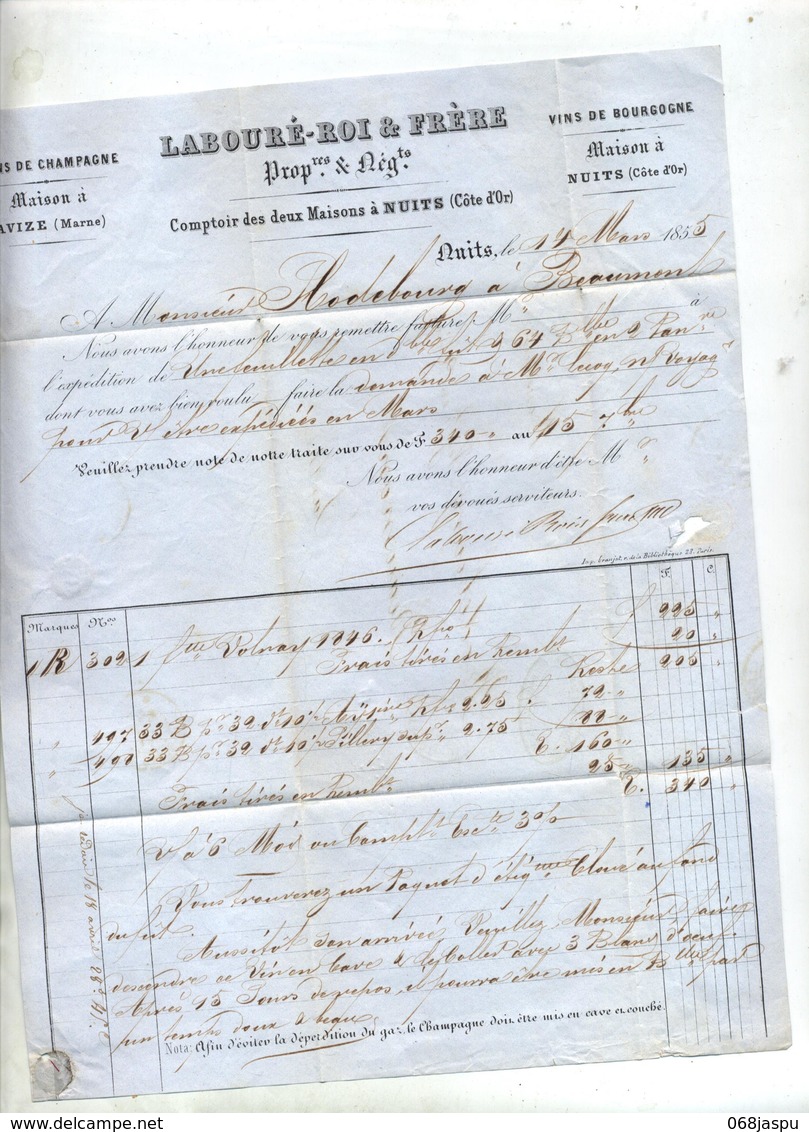 LABOURÉ-ROI & FRÈRE
Prop.res & Nég.ts
Comptoir des deux Maisons à NUITS (Côte d'Or)
NS DE CHAMPAGNE
Maison à
AVIZE (Marne)
VINS DE BOURGOGNE
Maison à
NUITS (Côte d'Or)
Nuits, le 14 Mars 1855
A Monsieur Hodebourg à Beaumont
Nous avons l'honneur de vous remettre facture, M à
l'expédition de Une feuillette en 64 Blle en 2 Pan
dont vous avez bien voulu faire la demande à Mr
pour être expédiées en Mars
Veuillez prendre note de notre traite sur vous de F. 340 " au 15 7bre
Nous avons l'honneur d'être M
vos dévoués serviteurs.
Imp. r. de la Bibliothèque 22. Paris.
Marques Nos F. C.
1 R 302 1 Volnay 1846. 225 "
Frais tirés en Rembt 20 "
Reste 205 "
" 497 33 B pr 32 2.25 72 "
" 498 33 B pr 32 Sillery supr 2.75 88 "
T. 160 "
Frais tirés en Rembt 25 " 135 "
T. 340 "
à 6 Mois ou Compt Escte 3 %
Vous trouverez un Paquet d'étiqttes Cloué au fond
du fût.
Aussitôt son arrivée Veuillez Monsieur faire
descendre ce Vin en Cave & le Coller avec 3 Blancs d'oeuf.
Après 15 Jours de repos, il pourra être mis en Blles par
un temps doux & beau
Nota: Afin d'éviter la déperdition du gaz, le Champagne doit être mis en cave et couché.
le 18 avril
068jaspu